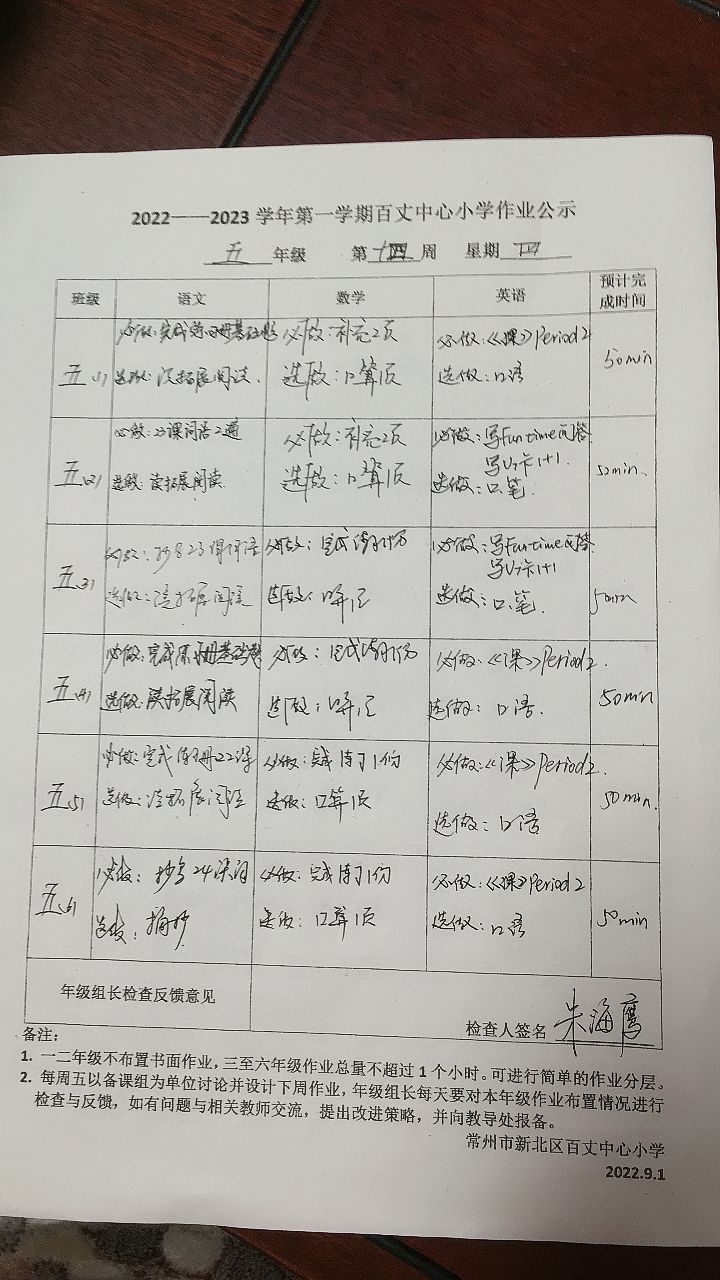 2022——2023 学年第一学期百丈中心小学作业公示
五 年级 第 十四 周 星期 四
班级 语文 数学 英语 预计完成时间
五(1)
必做:完成 基础题
选做:读拓展阅读.
必做:补充2页
选做:口算1页
必做:《课》Period 2
选做:口语
50min
五(2)
必做:23课词语2遍
选做:读拓展阅读.
必做:补充2页
选做:口算1页
必做:写Fun time问答
写U7卡1+1.
选做:口.笔.
50min.
五(3)
必做:抄 23课词语
选做:读拓展阅读
必做:完成 1份
选做:口算1页
必做:写Fun time问答
写U7卡1+1
选做:口.笔.
50min
五(4)
必做:完成 册基础题
选做:读拓展阅读
必做:完成 1份
选做:口算1页
必做:《课》Period 2.
选做:口语.
50min
五(5)
必做:完成 册22课
选做:读拓展阅读
必做:完成 1份
选做:口算1页
必做:《课》Period 2.
选做:口语
50min.
五(6)
必做:抄写24课词
选做:摘抄
必做:完成 1份
选做:口算1页
必做:《课》Period 2
选做:口语
50min
年级组长检查反馈意见
检查人签名 朱海鹰
备注:
1. 一二年级不布置书面作业,三至六年级作业总量不超过 1 个小时。可进行简单的作业分层。
2. 每周五以备课组为单位讨论并设计下周作业,年级组长每天要对本年级作业布置情况进行
检查与反馈,如有问题与相关教师交流,提出改进策略,并向教导处报备。
常州市新北区百丈中心小学
2022.9.1